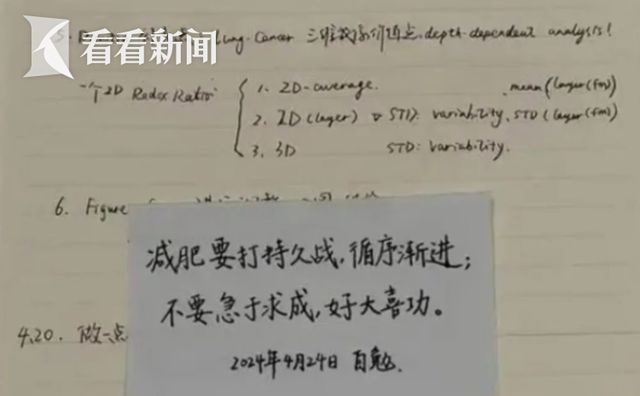 看看新闻
Lung-Cancer 三维数据 depth-dependent analysis!
一个2D Redox Ratio
1. 2D-average. mean(layer(fm))
2. 2D(layer) STD: variability. STD(layer(fm))
3. 3D STD: variability.
6. Figure
减肥要打持久战,循序渐进;
不要急于求成,好大喜功。
4.20. 做一点
2024年4月24日 自勉.